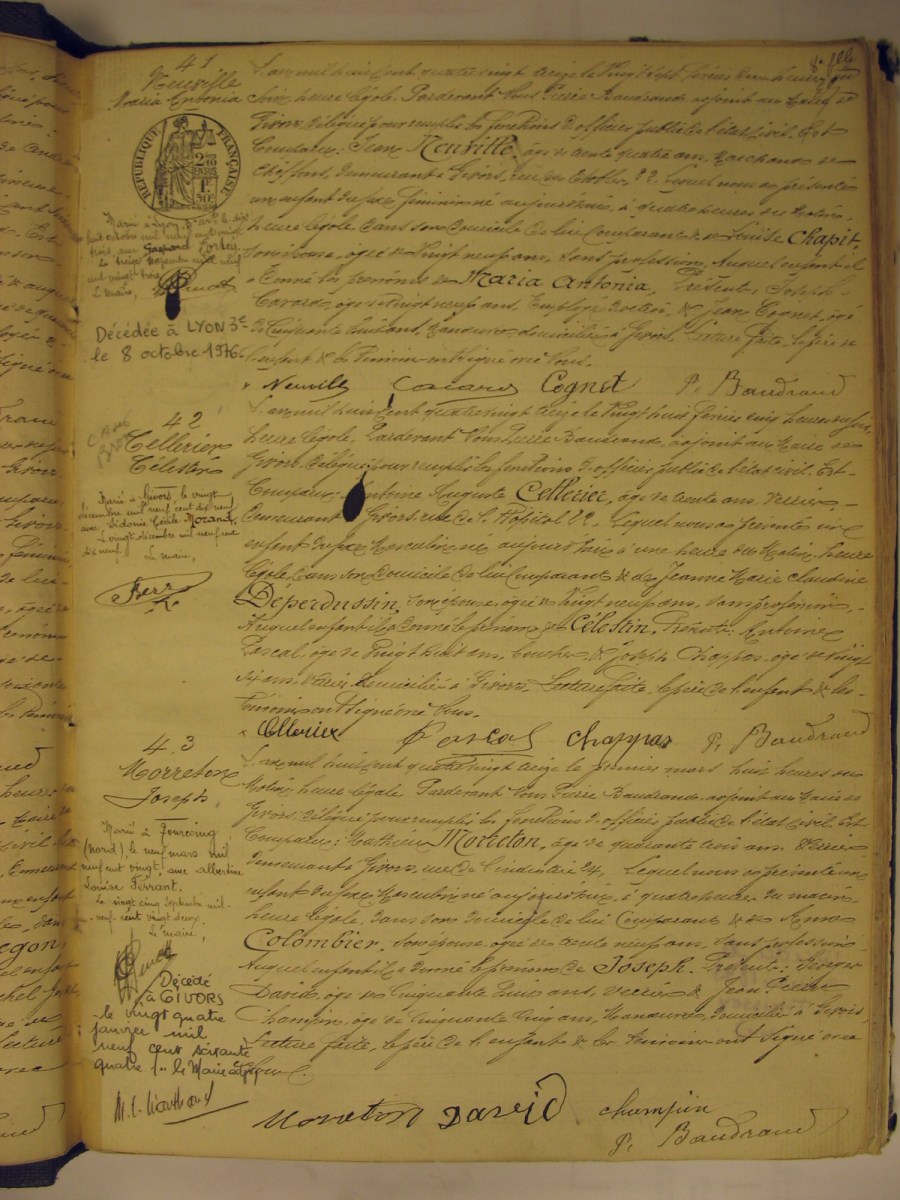 8e f.lle
41
Neuville
Maria Antonia
RÉPUBLIQUE FRANÇAISE
2/10 EN SUS
1F. 50c
Marié à Lyon, 3e arrt, le dix
huit octobre mil neuf cent vingt
trois, avec Gaspard
Le treize novembre mil neuf
cent vingt trois
Le maire,
Décédée à LYON 3e
le 8 octobre 1976.
L'an mil huit cent quatre vingt treize le Vingt Sept février
Soir heure légale. Pardevant Nous Pierre Baudrand adjoint au Maire de
Givors, délégué pour remplir les fonctions d'officier public de l'état civil. Est
Comparu: Jean Neuville, âgé de trente quatre ans, Marchand de
chiffons, demeurant à Givors, rue des 22, lequel nous a présenté
un enfant du sexe féminin né aujourd'hui, à quatre heures du Matin,
heure légale dans son Domicile de lui Comparant & de Louise Chapit,
Son épouse, âgée de Vingt neuf ans, Sans profession, Auquel enfant il
a donné les prénoms de Maria Antonia, Présents: Joseph
Cavard, âgé de Vingt neuf ans, Employé & Jean Cognet, âgé
de Cinquante huit ans, Manœuvre, domiciliés à Givors, Lecture faite, le père de
l'enfant & les Témoins ont Signé avec Nous.
Neuville Cavard Cognet P. Baudrand
42
Cellerier
Célestin
Marié à Givors, le vingt
décembre mil neuf cent dix neuf
avec Sidonie Cécile Morand,
Le vingt décembre mil neuf cent
dix neuf.
Le maire,
L'an mil huit cent quatre vingt treize le Vingt huit février cinq heures du soir,
heure légale, Pardevant Nous Pierre Baudrand, adjoint au Maire de
Givors, délégué pour remplir les fonctions d'officier public de l'état civil. Est
Comparu: Antoine Auguste Cellerier, âgé de trente ans, Verrier,
Demeurant à Givors, rue de l'Hôpital 22, Lequel nous a présenté un
enfant du sexe Masculin, né aujourd'hui à une heure du Matin, heure
légale, dans son Domicile de lui Comparant & de Jeanne Marie Claudine
Deperdussin, Son épouse, âgée de Vingt neuf ans, Sans profession,
Auquel enfant il a donné le prénom de Célestin. Présents: Antoine
Pascal, âgé de Vingt huit ans, & Joseph Chappas, âgé de Vingt
six ans, Verrier, domiciliés à Givors, Lecture faite, le père de l'enfant & les
Témoins ont Signé avec Nous.
Cellerier Pascal Chappas P. Baudrand
43
Morreton
Joseph
Marié à Tourcoing
(Nord), le neuf mars mil
neuf cent vingt, avec Albertine
Louise Ferrant.
Le vingt cinq septembre mil
neuf cent vingt deux.
Le maire,
Décédé
à GIVORS
le vingt quatre
janvier mil
neuf cent soixante
quatre
L'an mil huit cent quatre vingt treize le premier mars huit heures du
Matin, heure légale Pardevant Nous Pierre Baudrand, adjoint au Maire de
Givors, délégué pour remplir les fonctions d'officier public de l'état civil. Est
Comparu: Mathieu Morreton, âgé de quarante trois ans, Verrier
demeurant à Givors, rue de l'industrie 24, Lequel nous a présenté un
enfant du sexe Masculin né aujourd'hui, à quatre heures du matin
heure légale, dans son domicile de lui Comparant & de Anne
Colombier, Son épouse, âgée de trente neuf ans, Sans profession,
Auquel enfant il a donné le prénom de Joseph. Présents:
David, âgé de Cinquante huit ans, Verrier & Jean Pierre
Champin, âgé de Cinquante Cinq ans, Manœuvre, domiciliés à Givors,
Lecture faite, le père de l'enfant & les Témoins ont Signé avec
Nous.
Moreton David Champin
P. Baudrand